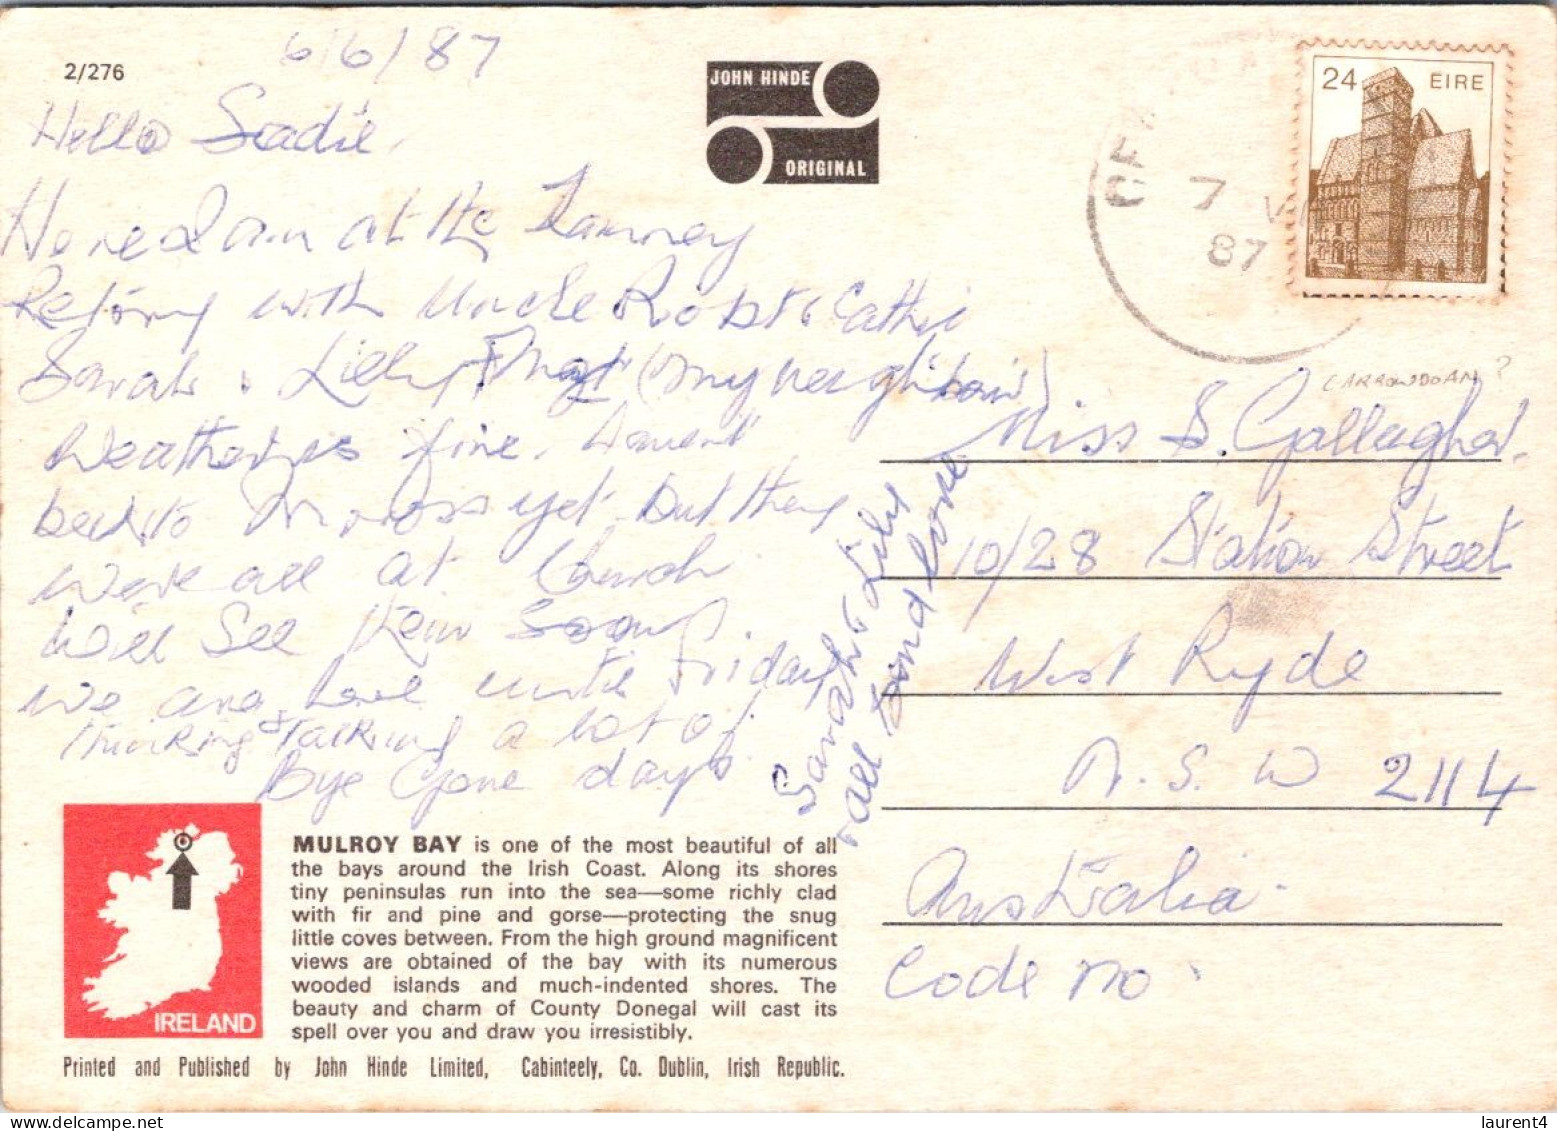 2/276
6/6/87
JOHN HINDE
ORIGINAL
24 EIRE
7 V
87
Hello Sadie,
Here I am at the
with Uncle Robt & Cathie
Sarah & Lilly & (my neighbour)
Weather is fine. Haven't
back to Moross yet but they
were all at Church
Will See them Soon
We are here until Friday
Thinking & Talking a lot of
Bye Gone days.
Sarah & Lily
all send love
CARROWDOAN?
Miss S. Gallagher.
10/28 Station Street
West Ryde
N. S. W 2114
Australia.
Code no.
IRELAND
MULROY BAY is one of the most beautiful of all
the bays around the Irish Coast. Along its shores
tiny peninsulas run into the sea—some richly clad
with fir and pine and gorse—protecting the snug
little coves between. From the high ground magnificent
views are obtained of the bay with its numerous
wooded islands and much-indented shores. The
beauty and charm of County Donegal will cast its
spell over you and draw you irresistibly.
Printed and Published by John Hinde Limited, Cabinteely, Co. Dublin, Irish Republic.
delcampe.net
laurent4